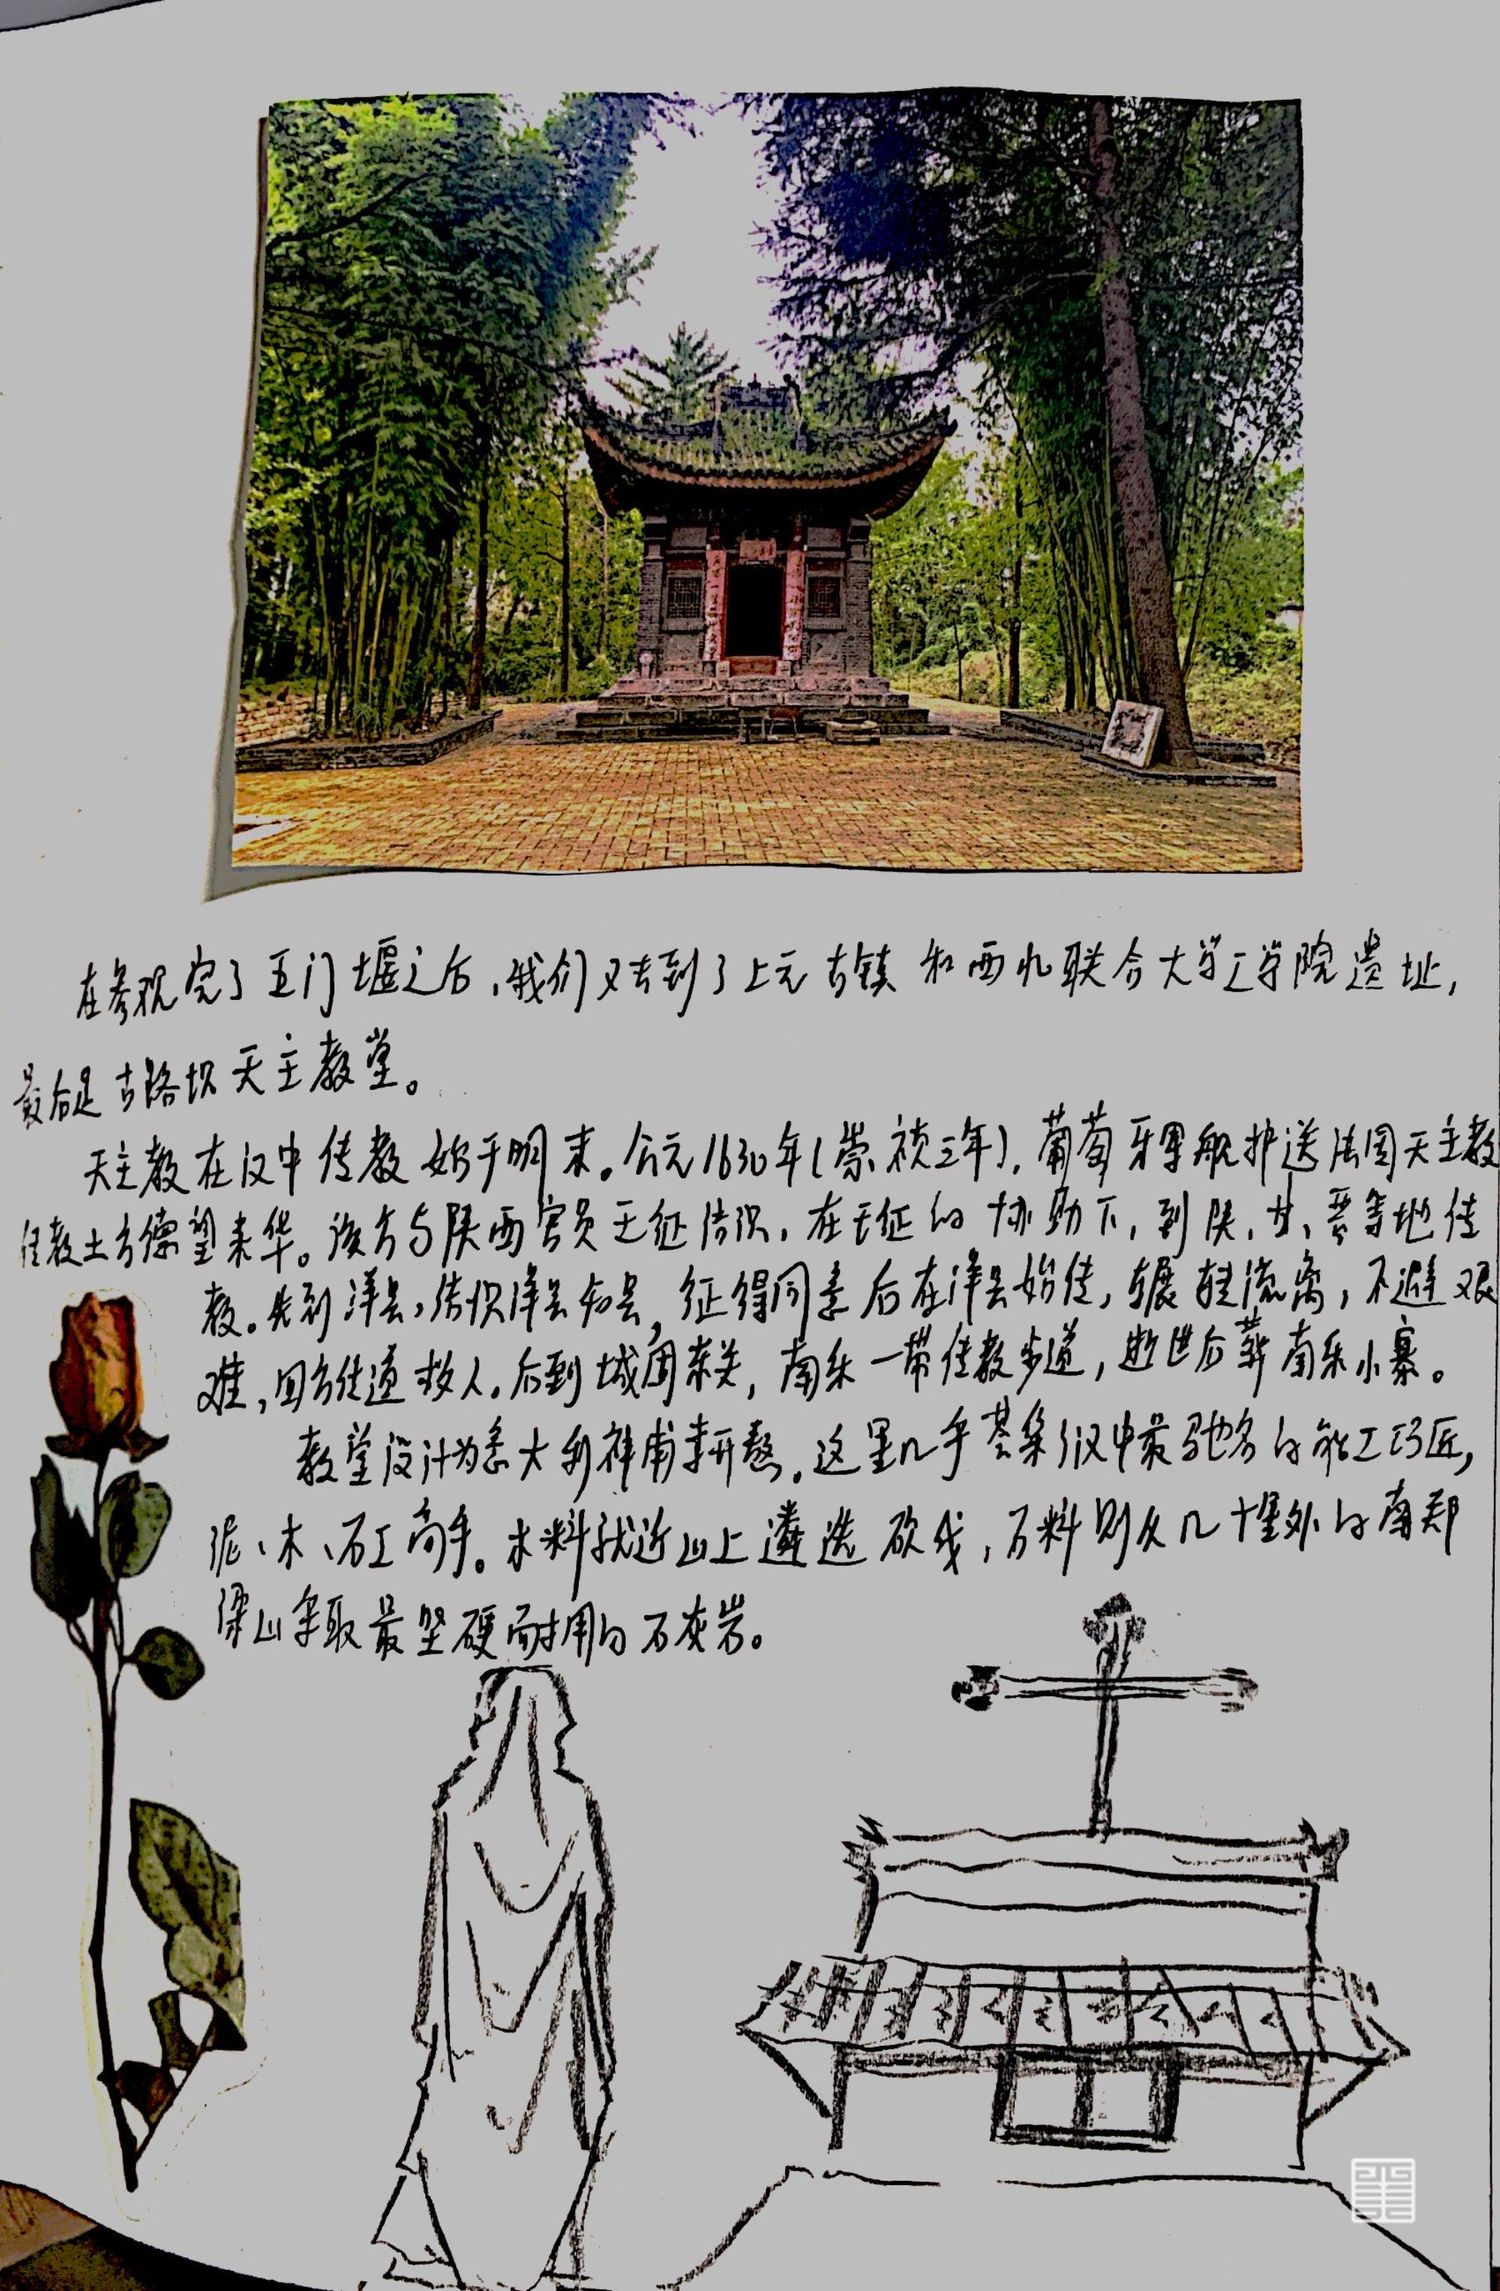 在参观完了五门堰之后，我们又去到了上元古镇和西北联合大学工学院遗址，
最后是古路坝天主教堂。
天主教在汉中传教始于明末。公元1630年(崇祯三年)，葡萄牙军舰护送法国天主教
传教士方德望来华。该方与陕西官员王征结识，在王征的协助下，到陕、甘、晋等地传
教。先到洋县，结识洋县知县，征得同意后在洋县始传，辗转流离，不避艰
难，四方传道救人。后到城固东关，南乐一带传教步道，逝世后葬南乐小寨。
教堂设计为意大利神甫李开熬。这里几乎荟集了汉中最驰名的能工巧匠，
泥、木、石工高手。木料就近山上遴选砍伐，石料则从几十里外的南郑
梁山采取最坚硬耐用的石灰岩。